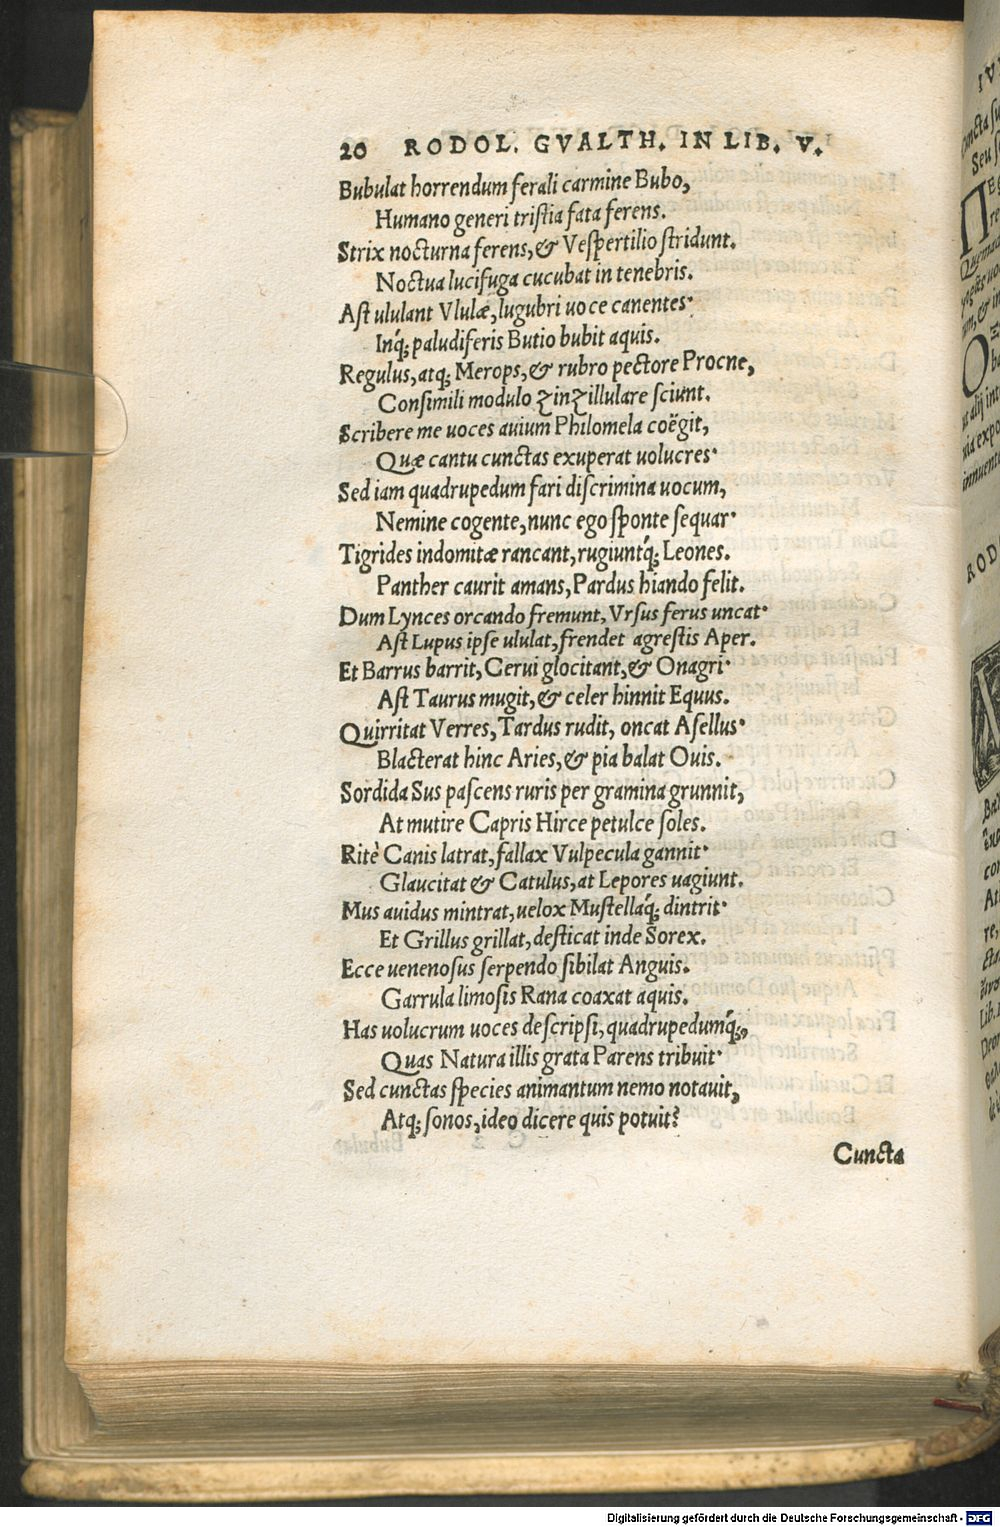 20 RODOL. GVALTH. IN LIB. V.
Bubulat horrendum ferali carmine Bubo,
Humano generi tristia fata ferens.
Strix nocturna ferens, & Vespertilio stridunt.
Noctua lucifuga cucubat in tenebris.
Ast ululant Vlulæ, lugubri uoce canentes·
Inq́; paludiferis Butio bubit aquis.
Regulus, atq; Merops, & rubro pectore Procne,
Consimili modulo zinzillulare sciunt.
Scribere me uoces auium Philomela coëgit,
Quæ cantu cunctas exuperat uolucres·
Sed iam quadrupedum fari discrimina uocum,
Nemine cogente, nunc ego sponte sequar·
Tigrides indomitæ rancant, rugiuntq́; Leones.
Panther caurit amans, Pardus hiando felit.
Dum Lynces orcando fremunt, Vrsus ferus uncat·
Ast Lupus ipse ululat, frendet agrestis Aper.
Et Barrus barrit, Cerui glocitant, & Onagri·
Ast Taurus mugit, & celer hinnit Equus.
Quirritat Verres, Tardus rudit, oncat Asellus·
Blacterat hinc Aries, & pia balat Ouis.
Sordida Sus pascens ruris per gramina grunnit,
At mutire Capris Hirce petulce soles.
Ritè Canis latrat, fallax Vulpecula gannit·
Glaucitat & Catulus, at Lepores uagiunt.
Mus auidus mintrat, uelox Mustellaq́; dintrit·
Et Grillus grillat, desticat inde Sorex.
Ecce uenenosus serpendo sibilat Anguis.
Garrula limosis Rana coaxat aquis.
Has uolucrum uoces descripsi, quadrupedumq́;,
Quas Natura illis grata Parens tribuit·
Sed cunctas species animantum nemo notauit,
Atq; sonos, ideo dicere quis potuit?
Cuncta
Digitalisierung gefördert durch die Deutsche Forschungsgemeinschaft - DFG